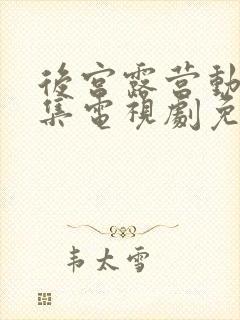 後宮露营動
集電視劇免
韦太雪